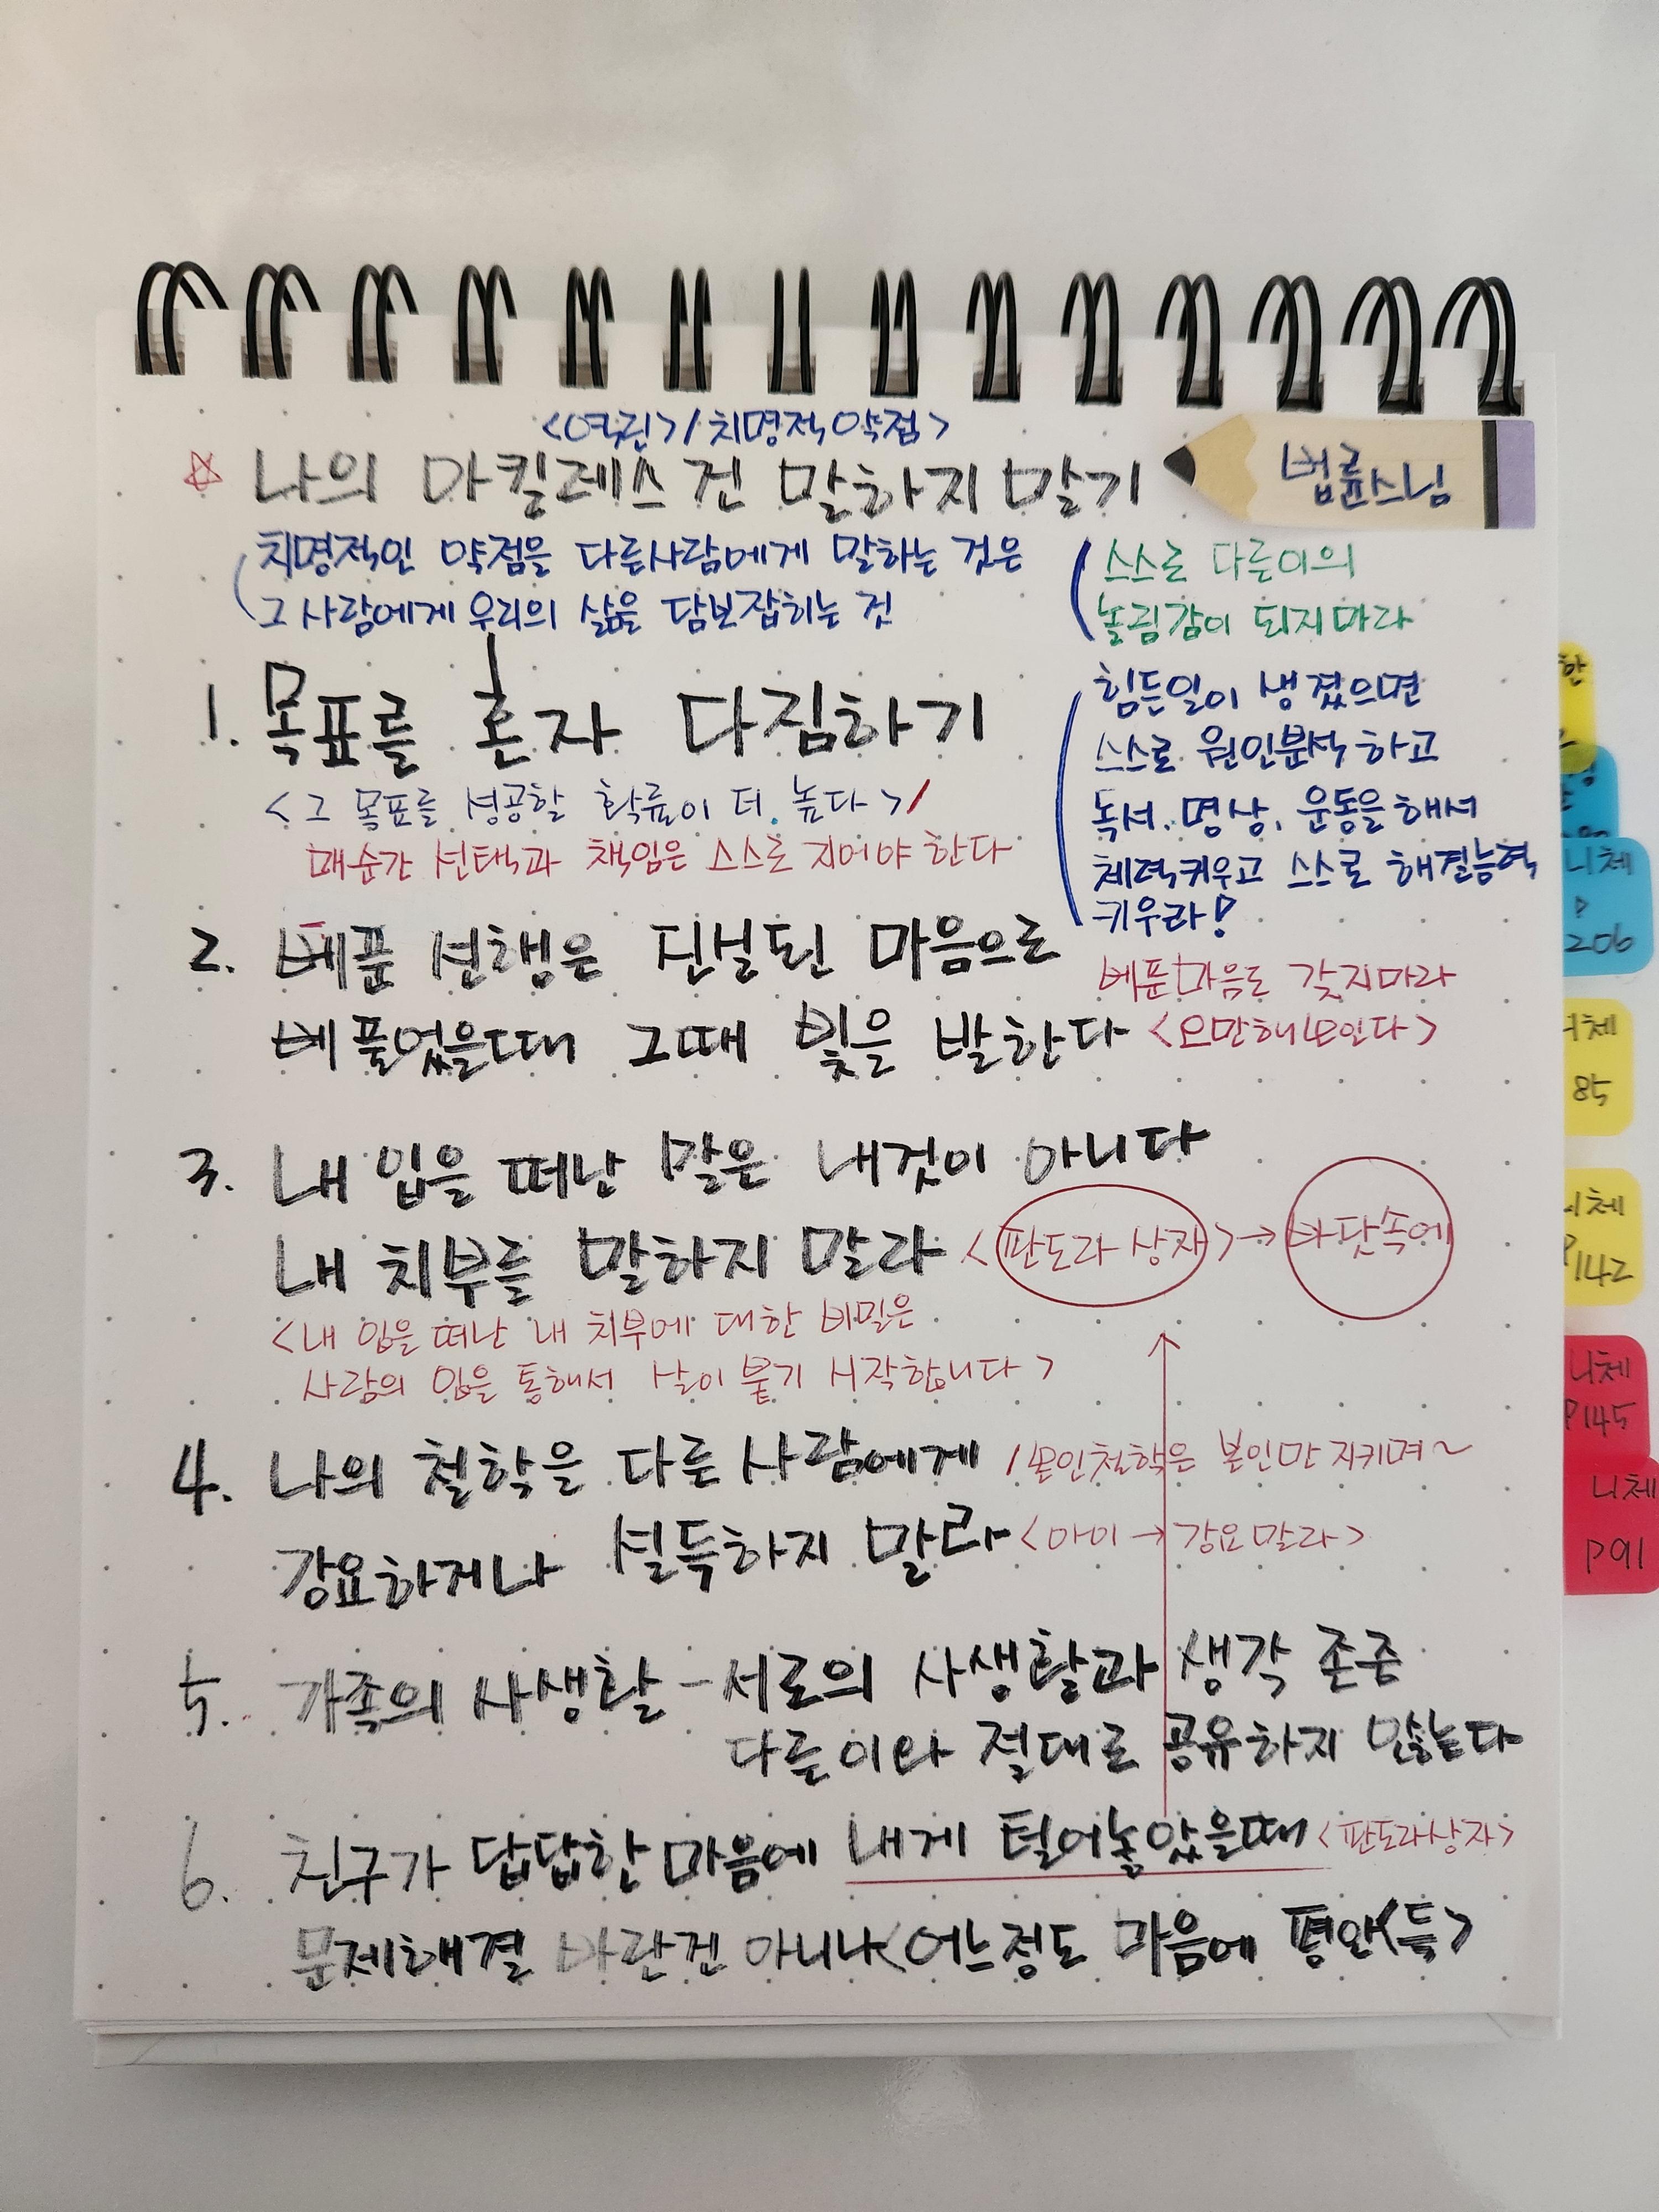 <역린> / 치명적 약점>
☆ 나의 아킬레스건 말하지 말기
법륜스님
치명적인 약점을 다른사람에게 말하는 것은
그 사람에게 우리의 삶을 담보잡히는 것
스스로 다른이의
놀림감이 되지마라
1. 목표를 혼자 다짐하기
<그 목표를 성공할 확률이 더 높다> /
매순간 선택과 책임은 스스로 지어야 한다
힘든일이 생겼으면
스스로 원인분석하고
독서. 명상, 운동을 해서
체력키우고 스스로 해결능력
키우라!
2. 베푼 선행은 진설된 마음으로
베풀었을때 그때 빛을 발한다 <오만해보인다>
베푼마음도 갖지마라
3. 내 입을 떠난 말은 내것이 아니다
내 치부를 말하지 말라 <판도라 상자> → 바닷속에
<내 입을 떠난 내 치부에 대한 비밀은
사람의 입을 통해서 날이 붙기 시작합니다>
4. 나의 철학을 다른 사람에게 / 본인철학은 본인만 지키며~
강요하게나 설득하지 말라 <아이 → 강요말라>
5. 가족의 사생활 - 서로의 사생활과 생각 존중
다른이와 절대로 공유하지 않는다
6. 친구가 답답한 마음에 내게 털어놓았을때 <판도라상자>
문제해결 바란건 아니나 <어느정도 마음에 평안(득>
한
니체
P
206
니체
85
니체
P142
니체
P145
니체
P91